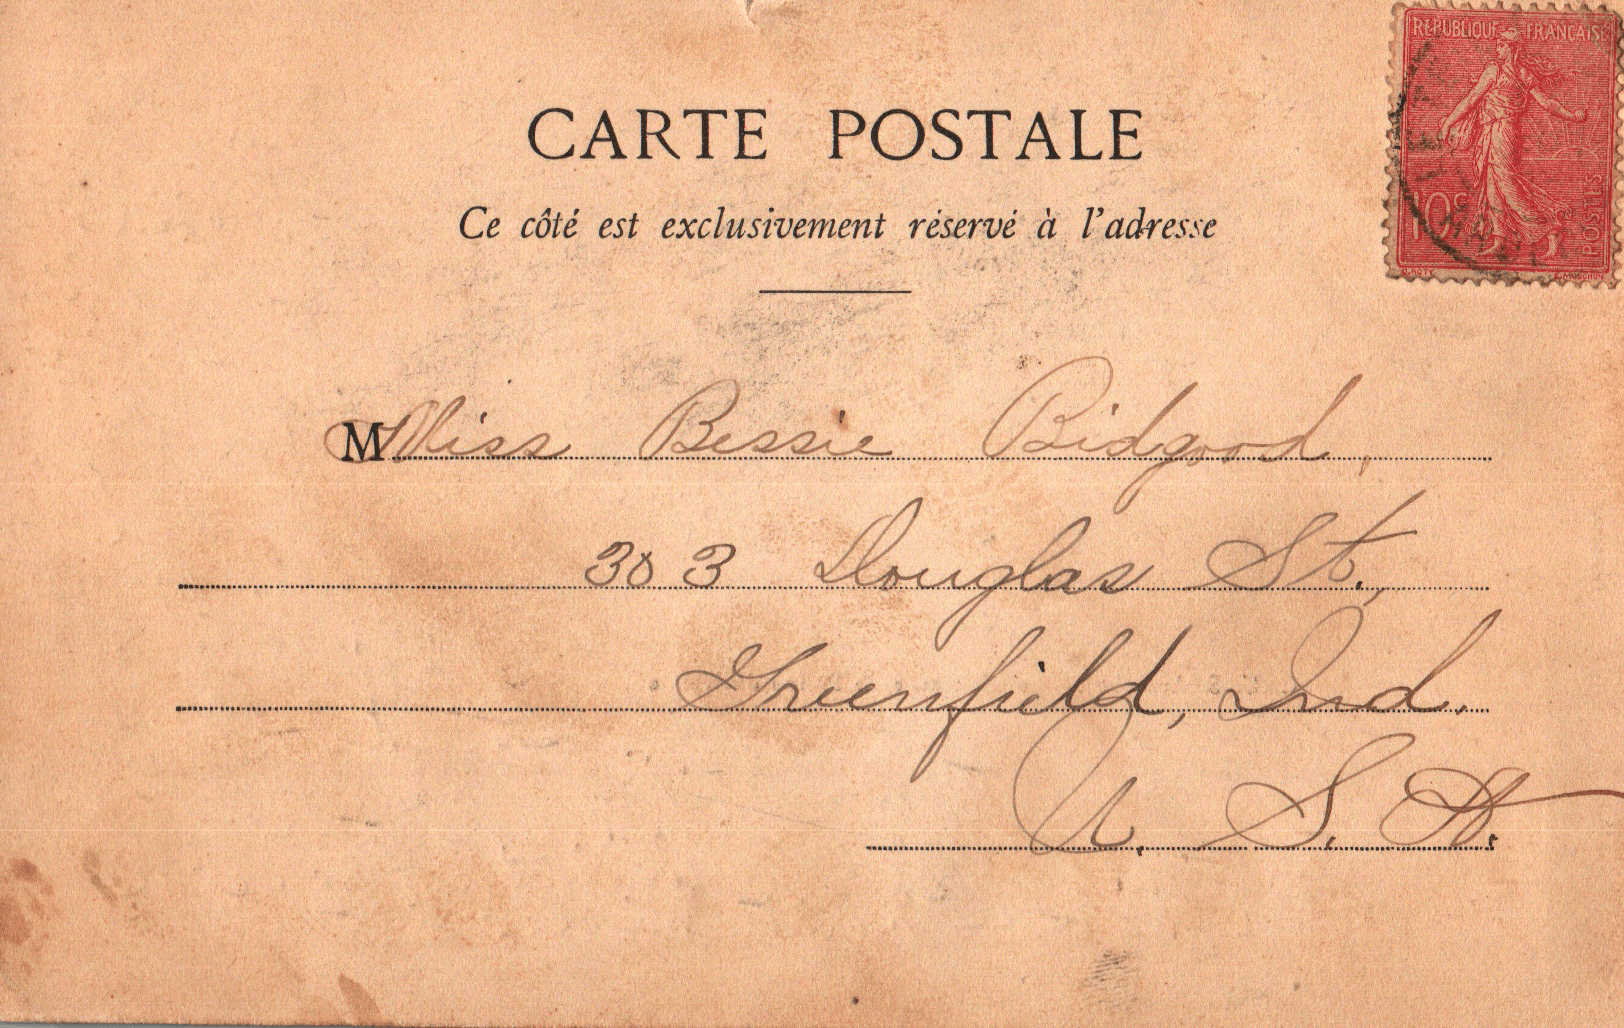 REPUBLIQUE FRANÇAISE
10c
POSTES
O. ROTY
CARTE POSTALE
Ce côté est exclusivement réservé à l'adresse
M Miss Bessie Bidgood,
303 Douglas St.,
Greenfield, Ind.
U. S. A.